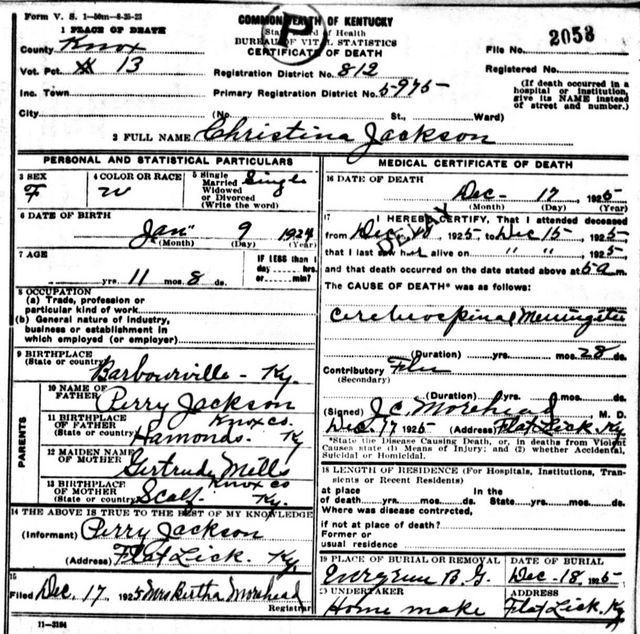 Form V. S. 1—50m—8-25-23
COMMONWEALTH OF KENTUCKY
State Board of Health
BUREAU OF VITAL STATISTICS
CERTIFICATE OF DEATH
P
1 PLACE OF DEATH
County Knox
Vot. Pct. # 13
Inc. Town
City
Registration District No. 812
Primary Registration District No. 5975
(No. St., Ward)
File No. 2058
Registered No.
(If death occurred in a
hospital or institution,
give its NAME instead
of street and number.)
2 FULL NAME Christina Jackson
PERSONAL AND STATISTICAL PARTICULARS
3 SEX
F
4 COLOR OR RACE
W
5 Single
Married
Widowed
or Divorced
(Write the word)
Single
6 DATE OF BIRTH
Jan 9 1924
(Month) (Day) (Year)
7 AGE
yrs. 11 mos. 8 ds.
IF LESS than 1
day hrs.
or min?
8 OCCUPATION
(a) Trade, profession or
particular kind of work
(b) General nature of industry,
business or establishment in
which employed (or employer)
9 BIRTHPLACE
(State or country)
Barbourville - Ky.
PARENTS
10 NAME OF
FATHER Perry Jackson
11 BIRTHPLACE
OF FATHER Knox co
(State or country) Hamonds. Ky
12 MAIDEN NAME
OF MOTHER Gertrude Mills
13 BIRTHPLACE
OF MOTHER Knox co
(State or country) Scalf Ky.
14 THE ABOVE IS TRUE TO THE BEST OF MY KNOWLEDGE
(Informant) Perry Jackson
(Address) Flat Lick. Ky.
15
Filed Dec. 17 1925 Mrs Bertha Morehead
Registrar
11—3184
MEDICAL CERTIFICATE OF DEATH
16 DATE OF DEATH
Dec - 17, 1925
(Month) (Day) (Year)
17 I HEREBY CERTIFY, That I attended deceased
from Dec. 18, 1925 to Dec 15, 1925
that I last saw her alive on " " ", 1925
and that death occurred on the date stated above at 5 a m.
DELAY
The CAUSE OF DEATH* was as follows:
Cerebrospinal Meningitis
(Duration) yrs. mos. 28 ds.
Contributory Flu
(Secondary)
(Duration) yrs. mos. ds.
(Signed) J.C. Morehead, M. D.
Dec. 17 1925 (Address) Flat Lick. Ky
*State the Disease Causing Death, or, in deaths from Violent
Causes state (1) Means of Injury; and (2) whether Accidental,
Suicidal or Homicidal.
18 LENGTH OF RESIDENCE (For Hospitals, Institutions, Transients or Recent Residents)
at place In the
of death yrs. mos. ds. State yrs. mos. ds.
Where was disease contracted,
if not at place of death?
Former or
usual residence
19 PLACE OF BURIAL OR REMOVAL
Evergreen B. G.
DATE OF BURIAL
Dec-18, 1925
20 UNDERTAKER
Home make
ADDRESS
Flat Lick, Ky